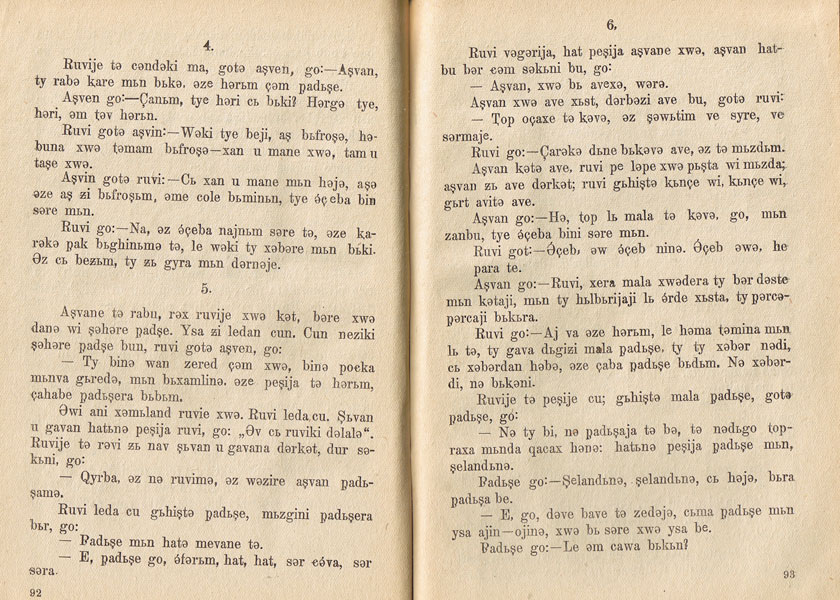 4.
Ruvije tə cəndəki ma, gotə aşven, go:—Aşvan,
ty rabə kare mьn bkə. əze hərьm çəm padьşe.
Aşven go:—Çanьm, tye həri cь bьki? Hərgə tye,
həri, əm təv hərьn.
Ruvi gotə aşvin:—Wəki tye beji, aş bьfroşə, hə-
buna xwə təmam bьfroşə—xan u mane xwə, tam u
taşe xwə.
Aşvin gotə ruvi:—Cь xan u mane mьn həjə, aşə
əze aş zi bьfroşьm, əme cole bьminьn, tye óçeba bin
səre mьn.
Ruvi go:—Na, əz óçeba najnьm səre tə, əze ka-
rəkə pak bьghinьmə tə, le wəki ty xəbəre mьn bьki.
Əz cь bezьm, ty zь gyra mьn dərnəje.
5.
Aşvane tə rabu, rəx ruvije xwə kət, bərə xwə
danə wi şəhəre padşe. Ysa zi ledan cun. Cun neziki
şəhəre padşe bun, ruvi gotə aşven, go:
— Ty binə wan zered çəm xwə, binə poçka
mьnva gьredə, mьn bьxamlinə. əze peşija tə hərьm,
çahabe padьşera bьbьm.
Əwi ani xəmьland ruvie xwə. Ruvi leda cu. Şьvan
u gavan hatьnə peşija ruvi, go: „Əv cь ruviki dəlalə“.
Ruvije tə rəvi zь nav şьvan u gavana dərkət, dur sə-
kьni, go:
— Qyrba, əz nə ruvimə, əz wəzire aşvan padь-
şamə.
Ruvi leda cu gьhiştə padьşe, mьzgini padьşera
bьr, go:
— Padьşe mьn hatə mevane tə.
— E, padьşe go, ófərьm, hat, hat, sər cóva, sər
səra.
92
6.
Ruvi vəgərija, hat peşija aşvane xwə, aşvan hat-
bu bər cəm səkьni bu, go:
— Aşvan, xwə bь avexə, wərə.
Aşvan xwə ave xьst, dərbəzi ave bu, gotə ruvi:
— Top oçaxe tə kəvə, əz şəwьtim ve syre, ve
sərmaje.
Ruvi go:—Çarəkə dьne bьkəvə ave, əz tə mьzdьm.
Aşvan kətə ave, ruvi pe ləpe xwə pьşta wi mьzda;
aşvan zь ave dərkət; ruvi gьhiştə kьnçe wi, kьnçe wi,
gьrt avitə ave.
Aşvan go:—Hə, top lь mala tə kəvə, go, mьn
zanbu, tye óçeba bini səre mьn.
Ruvi got:—Óçebь əw óçeb ninə. Óçeb əwə, he
para te.
Aşvan go:—Ruvi, xera mala xwədera ty bər dəste
mьn kətaji, mьn ty hьlbьrijaji lь órde xьstə, ty pərcə-
pərcaji bьkьra.
Ruvi go:—Aj va əze hərьm, le həma təmina mьn
lь tə, ty gava dьgizi mala padьşe, ty ty xəbər nədi,
cь xəbərdan həbə, əze çaba padьşe bьdьm. Nə xəbər-
di, nə bьkəni.
Ruvije tə peşije cu; gьhiştə mala padьşe, gotə
padьşe, gó:
— Nə ty bi, nə padьşaja tə bə, tə nədьgo top-
raxa mьnda qacax hənə: hatьnə peşija padьşe mьn,
şelandьnə.
Padьşe go:—Şelandьnə, şelandьnə, cь həjə, bьra
padьşa be.
— E, go, dəve bave tə zedəjə, cьma padьşe mьn
ysa ajin—ojinə, xwə bь səre xwə ysa be.
Padьşe go:—Le əm cawa bьkьn?
93